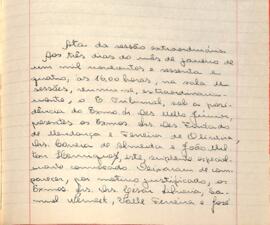 Ata da sessão extraordinária
Aos três dias do mês de janeiro de
um mil novecentos e sessenta e
quatro, às 16,00 horas, na sala de
sessões, reuniu-se, extraordinaria-
mente, o E. Tribunal, sob a presi-
dência do Exmo. Sr. Des. Mello Júnior,
presentes os Exmos. Srs. Des. Furtado
de Mendonça e Ferreira de Oliveira,
Drs. Correia de Almeida e João Mil-
ton Henriques, este, suplente especial-
mente convocado. Deixaram de com-
parecer, por motivo justificado, os
Exmos. Srs. Drs. César Silveira, Sa-
muel Werneck, Valle Ferreira e José